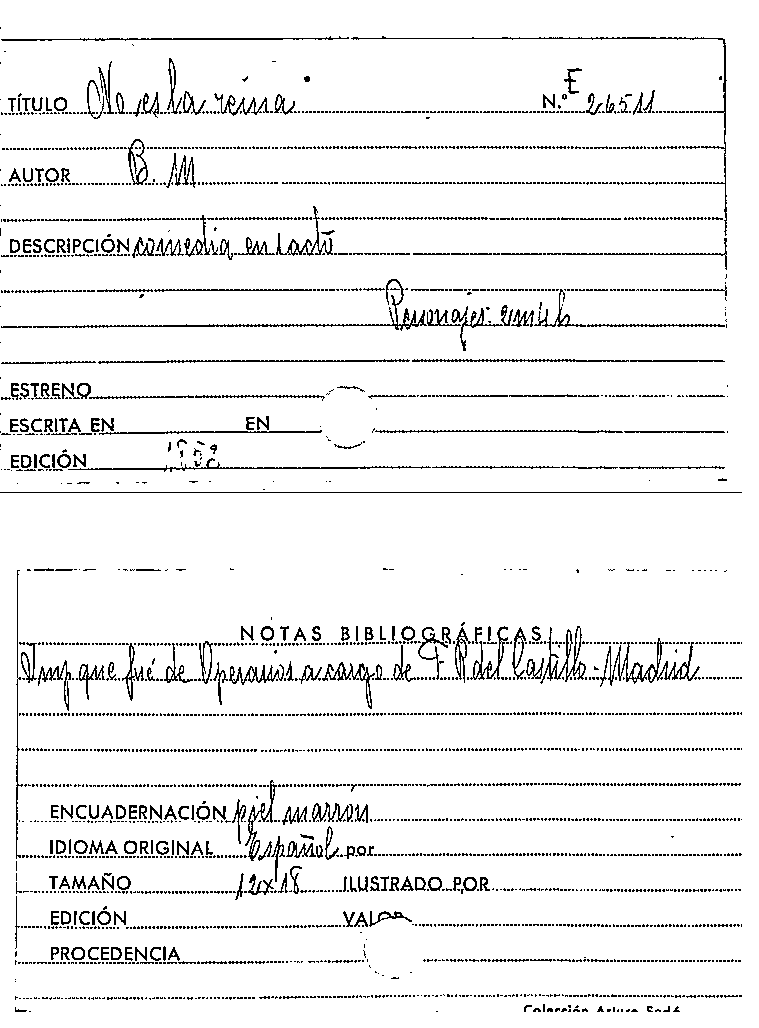 TÍTULO No es la reina N.º E 26511
AUTOR B. M
DESCRIPCIÓN comedia en 1 acto
Personajes: 2m 4h
ESTRENO
ESCRITA EN EN
EDICIÓN
NOTAS BIBLIOGRÁFICAS
Imp que fué de Operarios a cargo de F R del Castillo - Madrid
ENCUADERNACIÓN piel marrón
IDIOMA ORIGINAL Español por
TAMAÑO 12x18 ILUSTRADO POR
EDICIÓN VALOR
PROCEDENCIA
Colección Arturo Sedó